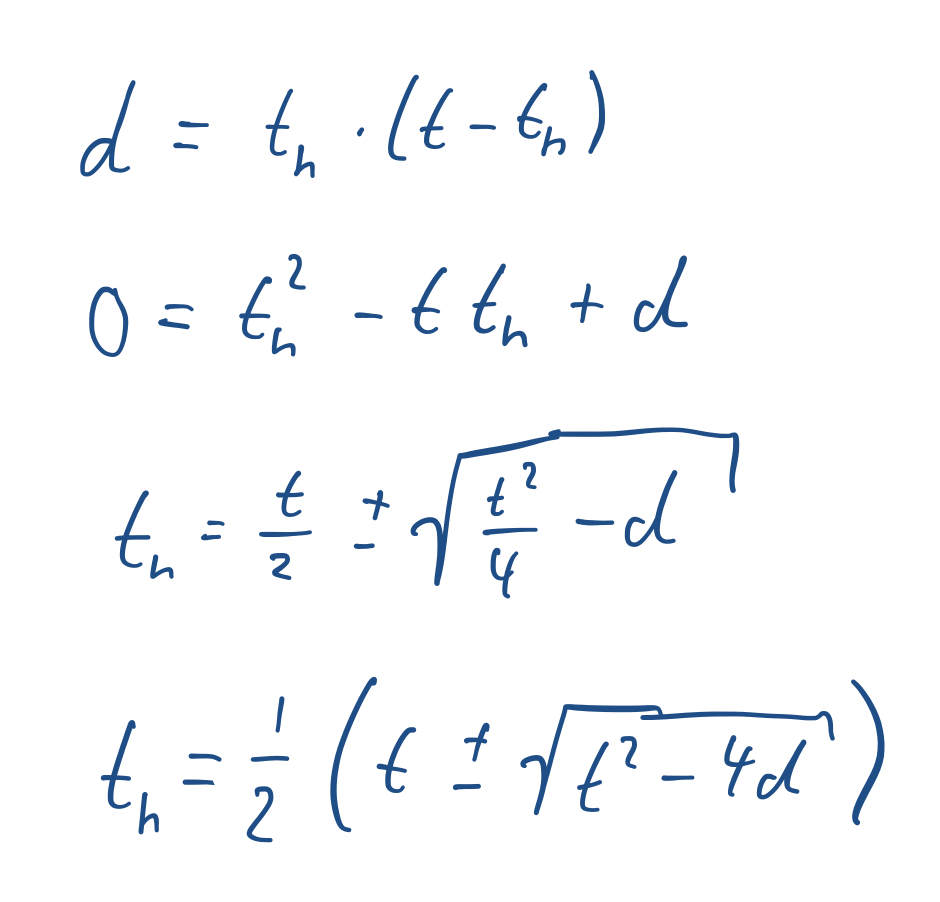 d = t_h · (t − t_h)
0 = t_h² − t t_h + d
t_h = t/2 ± √(t²/4 − d)
t_h = 1/2 (t ± √(t² − 4d))